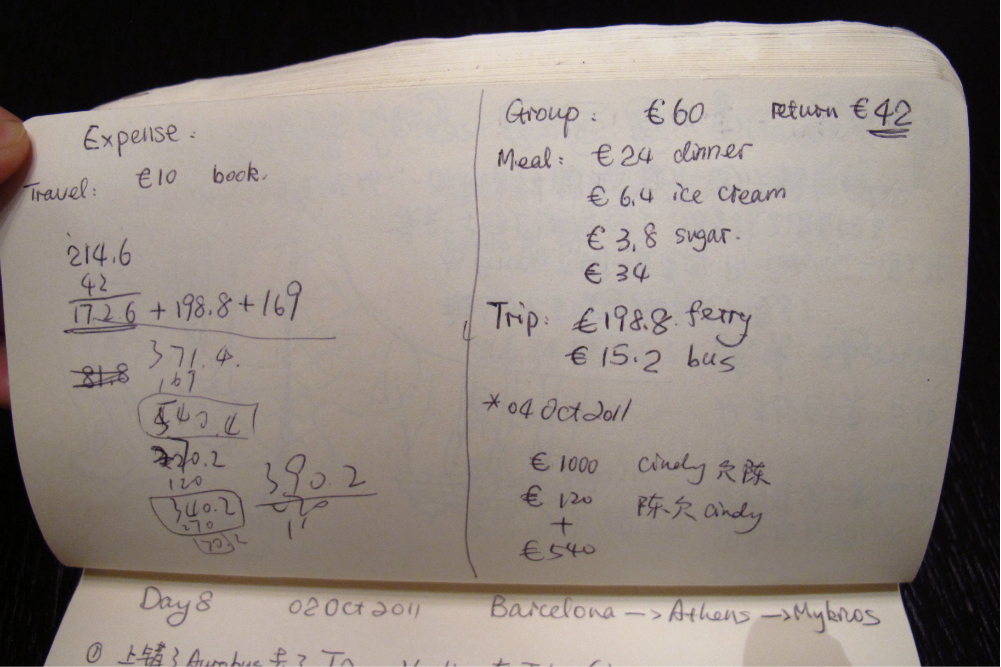 Expense:
Travel: €10 book.
214.6
42
172.6 + 198.8 + 169
371.4.
81.8
540.4
120
340.2
270
70.2
390.2
Group: €60 return €42
Meal: €24 dinner
€6.4 ice cream
€3.8 sugar.
€34
Trip: €198.8. ferry
€15.2 bus
*04 Oct 2011
€1000 cindy 欠陈
€120 陈欠 cindy
+
€540
Day 8 02 Oct 2011 Barcelona → Athens → Myknos
①